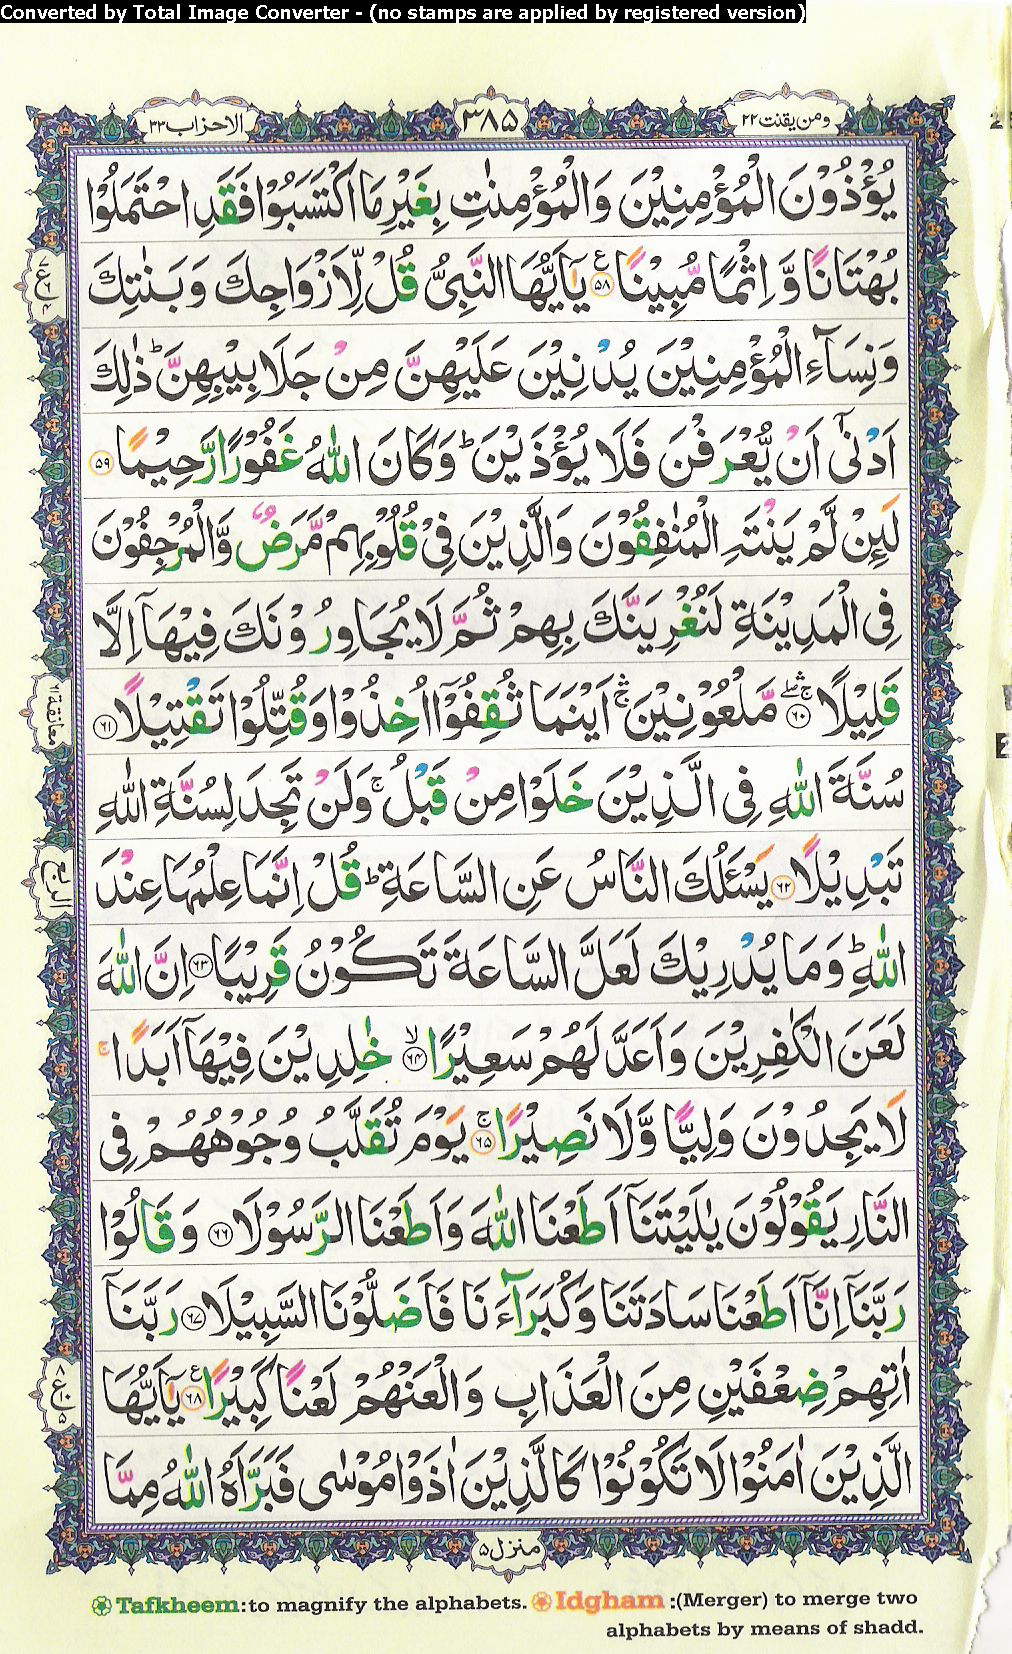 Converted by Total Image Converter - (no stamps are applied by registered version)
ومن يقنت ٢٢
٣٨۵
الاحزاب ٣٣
يُؤْذُوْنَ الْمُؤْمِنِيْنَ وَالْمُؤْمِنٰتِ بِغَيْرِ مَا اكْتَسَبُوْا فَقَدِ احْتَمَلُوْا
بُهْتَانًا وَّ اِثْمًا مُّبِيْنًا ۵۸ ع يٰٓاَيُّهَا النَّبِىُّ قُلْ لِّاَزْوَاجِكَ وَ بَنٰتِكَ
وَنِسَآءِ الْمُؤْمِنِيْنَ يُدْنِيْنَ عَلَيْهِنَّ مِنْ جَلَابِيْبِهِنَّ ؕ ذٰلِكَ
اَدْنٰٓى اَنْ يُّعْرَفْنَ فَلَا يُؤْذَيْنَ ؕ وَكَانَ اللّٰهُ غَفُوْرًا رَّحِيْمًا ۵۹
لَئِنْ لَّمْ يَنْتَهِ الْمُنٰفِقُوْنَ وَالَّذِيْنَ فِىْ قُلُوْبِهِمْ مَّرَضٌ وَّالْمُرْجِفُوْنَ
فِى الْمَدِيْنَةِ لَنُغْرِيَنَّكَ بِهِمْ ثُمَّ لَا يُجَاوِرُوْنَكَ فِيْهَآ اِلَّا
قَلِيْلًا ۶۰ ۛۚ مَّلْعُوْنِيْنَ ۛۚ اَيْنَمَا ثُقِفُوْٓا اُخِذُوْا وَقُتِّلُوْا تَقْتِيْلًا ۶۱
سُنَّةَ اللّٰهِ فِى الَّذِيْنَ خَلَوْا مِنْ قَبْلُ ۚ وَلَنْ تَجِدَ لِسُنَّةِ اللّٰهِ
تَبْدِيْلًا ۶۲ يَسْـَٔلُكَ النَّاسُ عَنِ السَّاعَةِ ؕ قُلْ اِنَّمَا عِلْمُهَا عِنْدَ
اللّٰهِ ؕ وَمَا يُدْرِيْكَ لَعَلَّ السَّاعَةَ تَكُوْنُ قَرِيْبًا ۶۳ اِنَّ اللّٰهَ
لَعَنَ الْكٰفِرِيْنَ وَاَعَدَّ لَهُمْ سَعِيْرًا ۶۴ ۙ خٰلِدِيْنَ فِيْهَآ اَبَدًا ۚ
لَا يَجِدُوْنَ وَلِيًّا وَّلَا نَصِيْرًا ۶۵ ۚ يَوْمَ تُقَلَّبُ وُجُوْهُهُمْ فِى
النَّارِ يَقُوْلُوْنَ يٰلَيْتَنَآ اَطَعْنَا اللّٰهَ وَاَطَعْنَا الرَّسُوْلَا ۶۶ وَقَالُوْا
رَبَّنَآ اِنَّآ اَطَعْنَا سَادَتَنَا وَكُبَرَآءَنَا فَاَضَلُّوْنَا السَّبِيْلَا ۶۷ رَبَّنَآ
اٰتِهِمْ ضِعْفَيْنِ مِنَ الْعَذَابِ وَالْعَنْهُمْ لَعْنًا كَبِيْرًا ۶۸ ع يٰٓاَيُّهَا
الَّذِيْنَ اٰمَنُوْا لَا تَكُوْنُوْا كَالَّذِيْنَ اٰذَوْا مُوْسٰى فَبَرَّاَهُ اللّٰهُ مِمَّا
منزل ۵
Tafkheem:to magnify the alphabets. Idgham :(Merger) to merge two
alphabets by means of shadd.